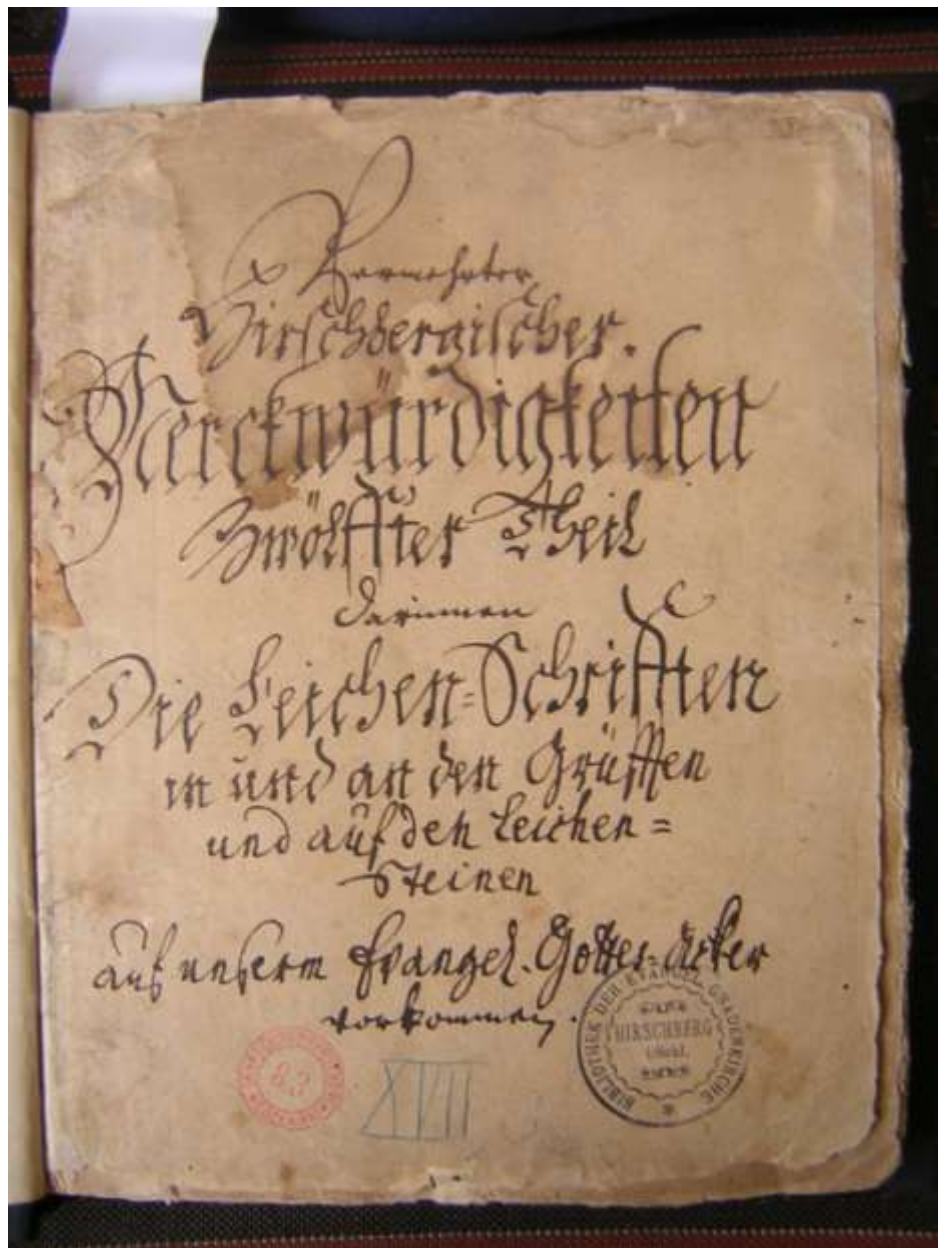 Vermehrter
Hirschbergischer.
Merckwürdigkeiten
Zwölffter Theil
darinnen
Die Leichen=Schrifften
in und an den Grüfften
und auf den Leichen=
Steinen
auf unserm Evangel. Gottes-Acker
vorkommen.
BIBLIOTHEK DER EVANGEL. GNADENKIRCHE
HIRSCHBERG
(Schl.
XVII